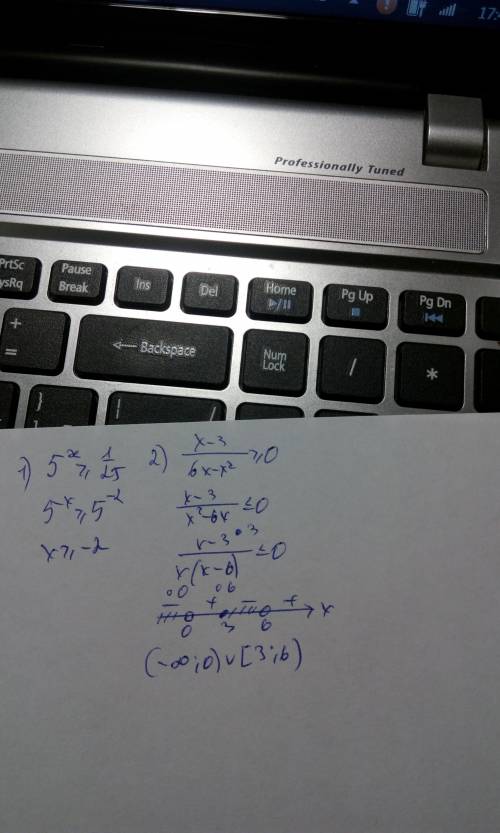 17:4
Professionally Tuned
PrtSc
SysRq
Pause
Break
Ins
Del
Home
Pg Up
Pg Dn
+
=
Backspace
Num
Lock
/
*
}
|
/
1) 5^x ≥ 1/25
5^x ≥ 5^-2
x ≥ -2
2) (x-3)/(6x-x²) ≥ 0
(x-3)/(x²-6x) ≤ 0
(x-3)/(x(x-6)) ≤ 0
•3
∘0 ∘6
− + − + x
0 3 6
(-∞;0)∪[3;6)